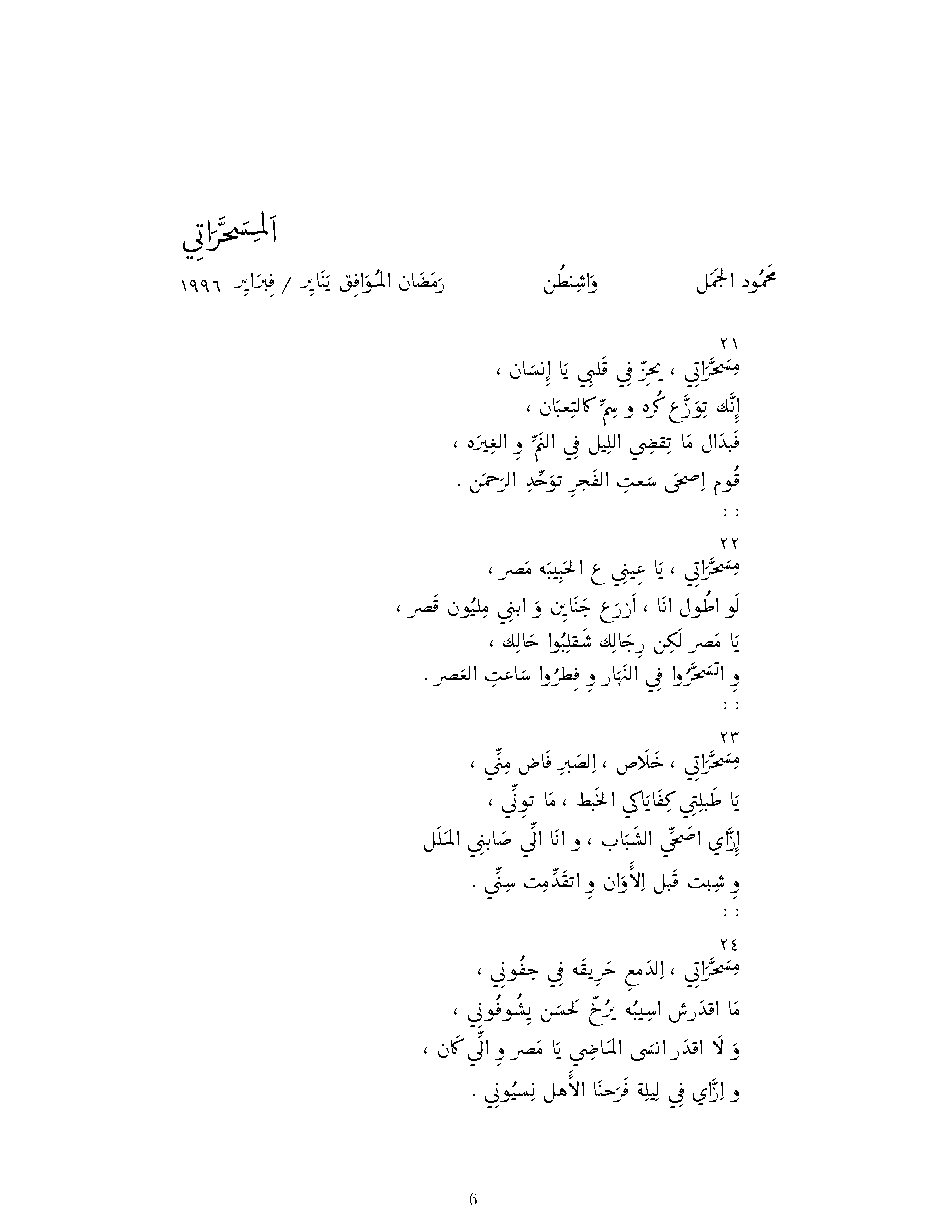 اَلمِسَحَّرَاتِي
مَحمُود الجَمَل وَاشِنطُن رَمَضَان المُوَافِق يَنَايِر / فِبرَايِر ١٩٩٦
٢١
مِسَحَّرَاتِي ، يحِزّ فِي قَلبِي يَا إِنسَان ،
إِنَّك تِوَزَّع كُره و سِمّ كالتِعبَان ،
فَبدَال مَا تِقضِي اللِيل فِي النَمّ وِ الغِيرَه ،
قُوم اِصحَى سَعتِ الفَجرِ توَحِّدِ الرَحمَن .
: :
٢٢
مِسَحَّرَاتِي ، يَا عِينِي ع الحَبِيبَه مَصر ،
لَو اطُول انَا ، اَزرَع جَنَايِن وَ ابنِي مِليُون قَصر ،
يَا مَصر لَكِن رِجَالِك شَقلِبُوا حَالِك ،
وِ اتسَحَّرُوا فِي النَهَار وِ فِطرُوا سَاعتِ العَصر .
: :
٢٣
مِسَحَّرَاتِي ، خَلَاص ، اِلصَبرِ فَاض مِنِّي ،
يَا طَبلِتِي كِفَايَاكِي الخَبط ، مَا تونِّي ،
إِزَّاي اصَحِّي الشَبَاب ، و انَا الِّي صَابنِي المَلَل
وِ شِبت قَبل اِلأَوَان وِ اتقَدِّمِت سِنِّي .
: :
٢٤
مِسَحَّرَاتِي ، اِلدَمعِ حَرِيقَه فِي جفُونِي ،
مَا اقدَرش اسِيبُه يرُخّ لَحسَن يِشُوفُونِي ،
وَ لَا اقدَر انسَى المَاضِي يَا مَصر وِ الِّي كَان ،
و اِزَّاي فِي لِيلِة فَرَحنَا الأَهل نِسيُونِي .
6